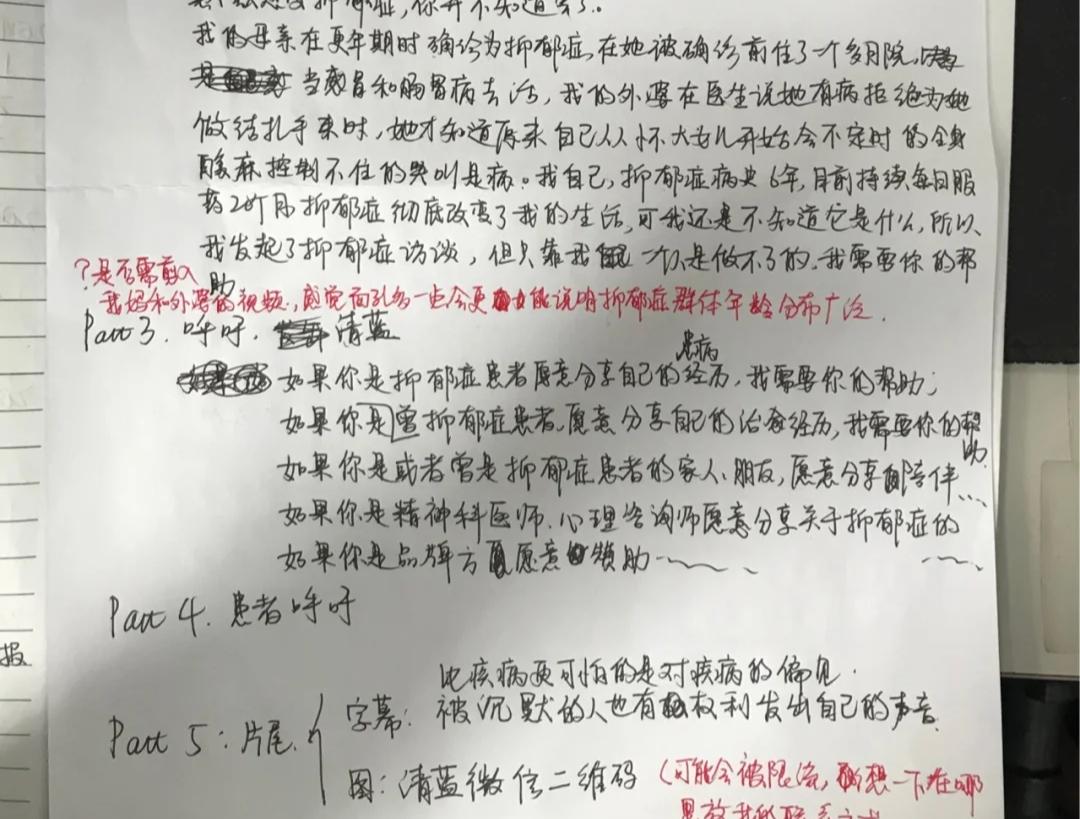 抑郁症,你并不知道
我的母亲在更年期时确诊为抑郁症,在她被确诊前住了一个多月院,
当感冒和肠胃病去治,我的外婆在医生说她有病拒绝为她
做结扎手术时,她才知道原来自己从怀大女儿开始会不定时的全身
酸麻控制不住的哭叫是病。我自己,抑郁症病史6年,目前持续每日服
药2个月抑郁症彻底改变了我的生活,可我还是不知道它是什么,所以
我发起了抑郁症访谈,但只靠我一个人是做不了的.我需要你的帮
助
?是否需剪入
我妈和外婆的视频,感觉面孔多一点会更能说明抑郁症群体年龄分布广泛.
Part 3. 呼吁. 清蓝
如果你是抑郁症患者愿意分享自己的患病经历,我需要你的帮助;
如果你是曾抑郁症患者,愿意分享自己的治愈经历,我需要你的帮助.
如果你是或者曾是抑郁症患者的家人、朋友,愿意分享陪伴...
如果你是精神科医师、心理咨询师愿意分享关于抑郁症的
如果你是品牌方愿意赞助
Part 4. 患者呼吁
比疾病更可怕的是对疾病的偏见.
Part 5:片尾. 字幕: 被沉默的人也有权利发出自己的声音.
图:清蓝微信二维码 (可能会被限流,想一下在哪
里放我的联系方式
报